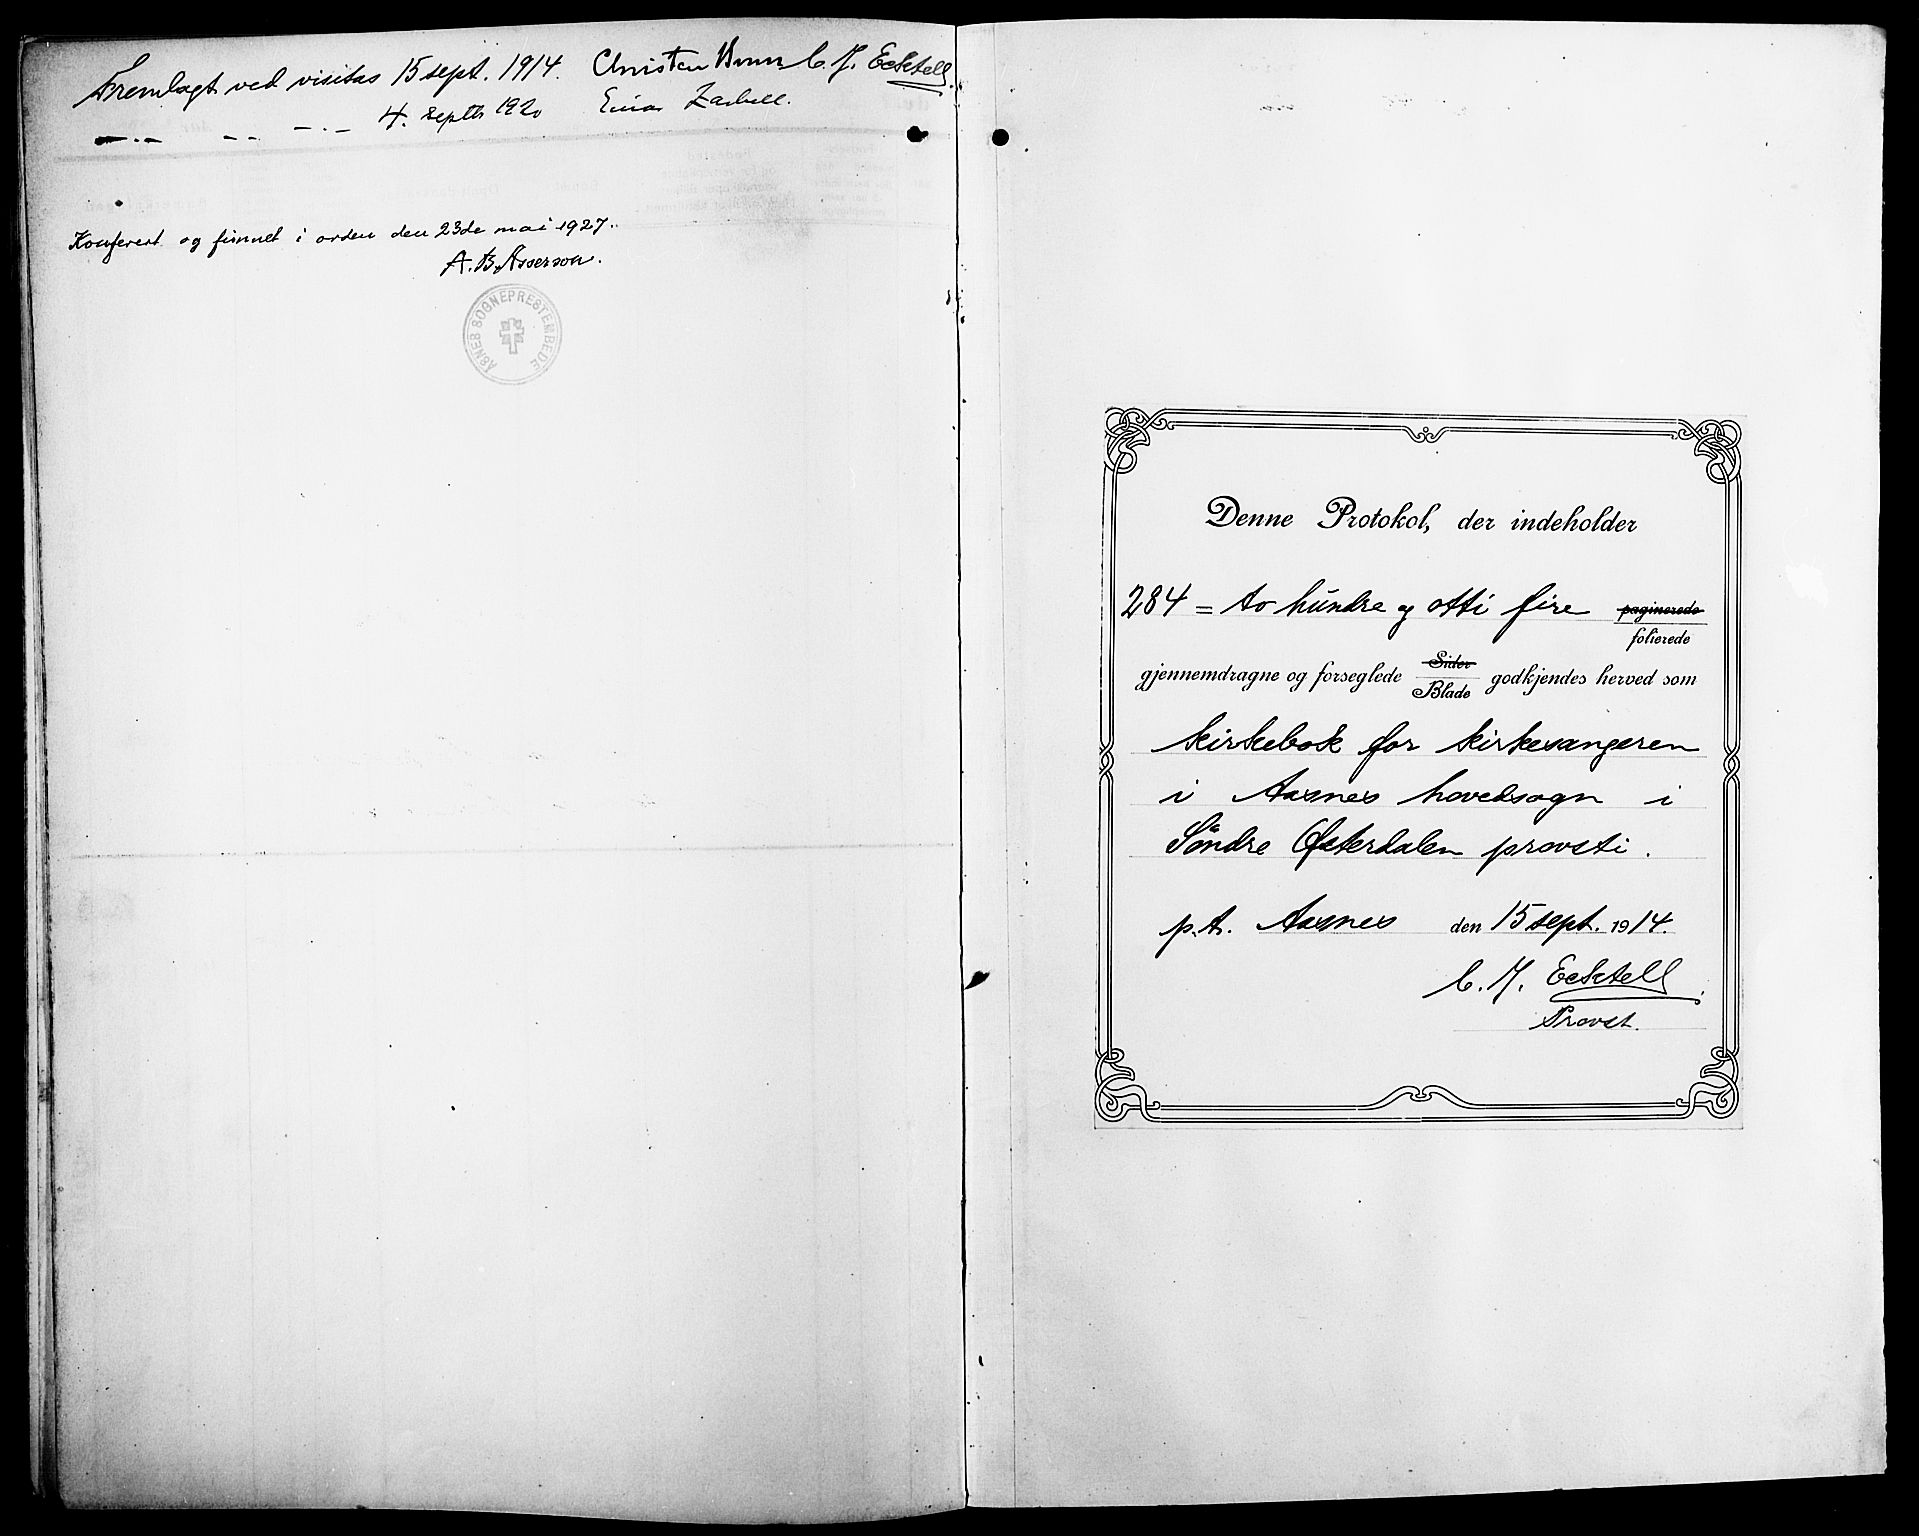 Fremlagt ved visitas 15 sept. 1914. Christen Brun C. J. Ecktell
— . — — — — . — 4. septb 1920 Einar
Konferert og funnet i orden den 23de mai 1927.
A. B. Asserson.
ÅSNES SOGNEPRESTEMBEDE
Denne Protokol, der indeholder
284 = to hundre og otti fire paginerede
folierede
gjennemdragne og forseglede Sider
Blade godkjendes herved som
kirkebok for kirkesangeren
i Aasnes hovedsogn i
Søndre Østerdalen provsti.
p.t. Aasnes den 15 sept. 1914.
C. J. Ecktell
Provst.